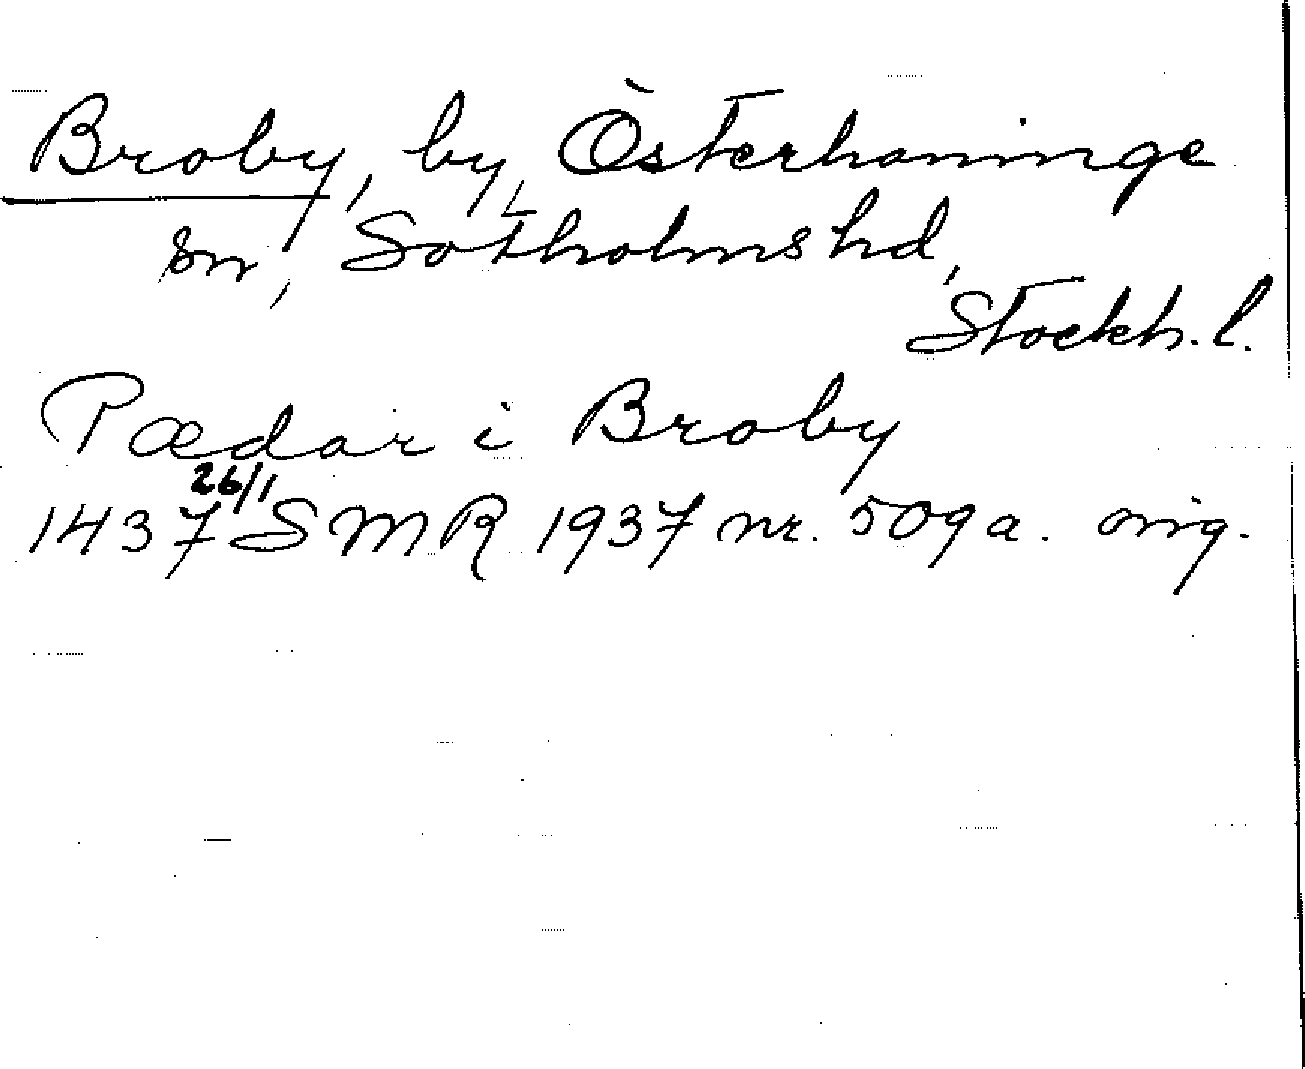 Broby, by, Österhaninge
sn, Sotholms hd,
Stockh. l.
Pædar i Broby
1437 26/1 SMR 1937 nr. 509a. orig.